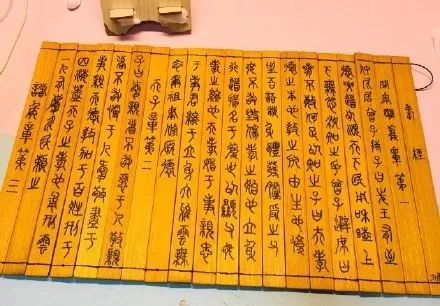 孝經
開宗明義章第一
仲尼居曾子侍子曰先王有至
德要道以順天下民用和睦上
下無怨汝知之乎曾子避席曰
參不敏何足以知之子曰夫孝
德之本也教之所由生也復
坐吾語汝身體髮膚受之父
母不敢毀傷孝之始也立身
行道揚名于後世以顯父母
孝之終也夫孝始于事親
于事君終于立身大雅雲無
念爾祖聿脩厥德
天子章第二
子曰愛親者不敢惡于人敬親
者不敢慢于人愛敬盡于
事親而德教加于百姓刑于
四海蓋天子之孝也甫刑雲
一人有慶兆民賴之
諸侯章第三